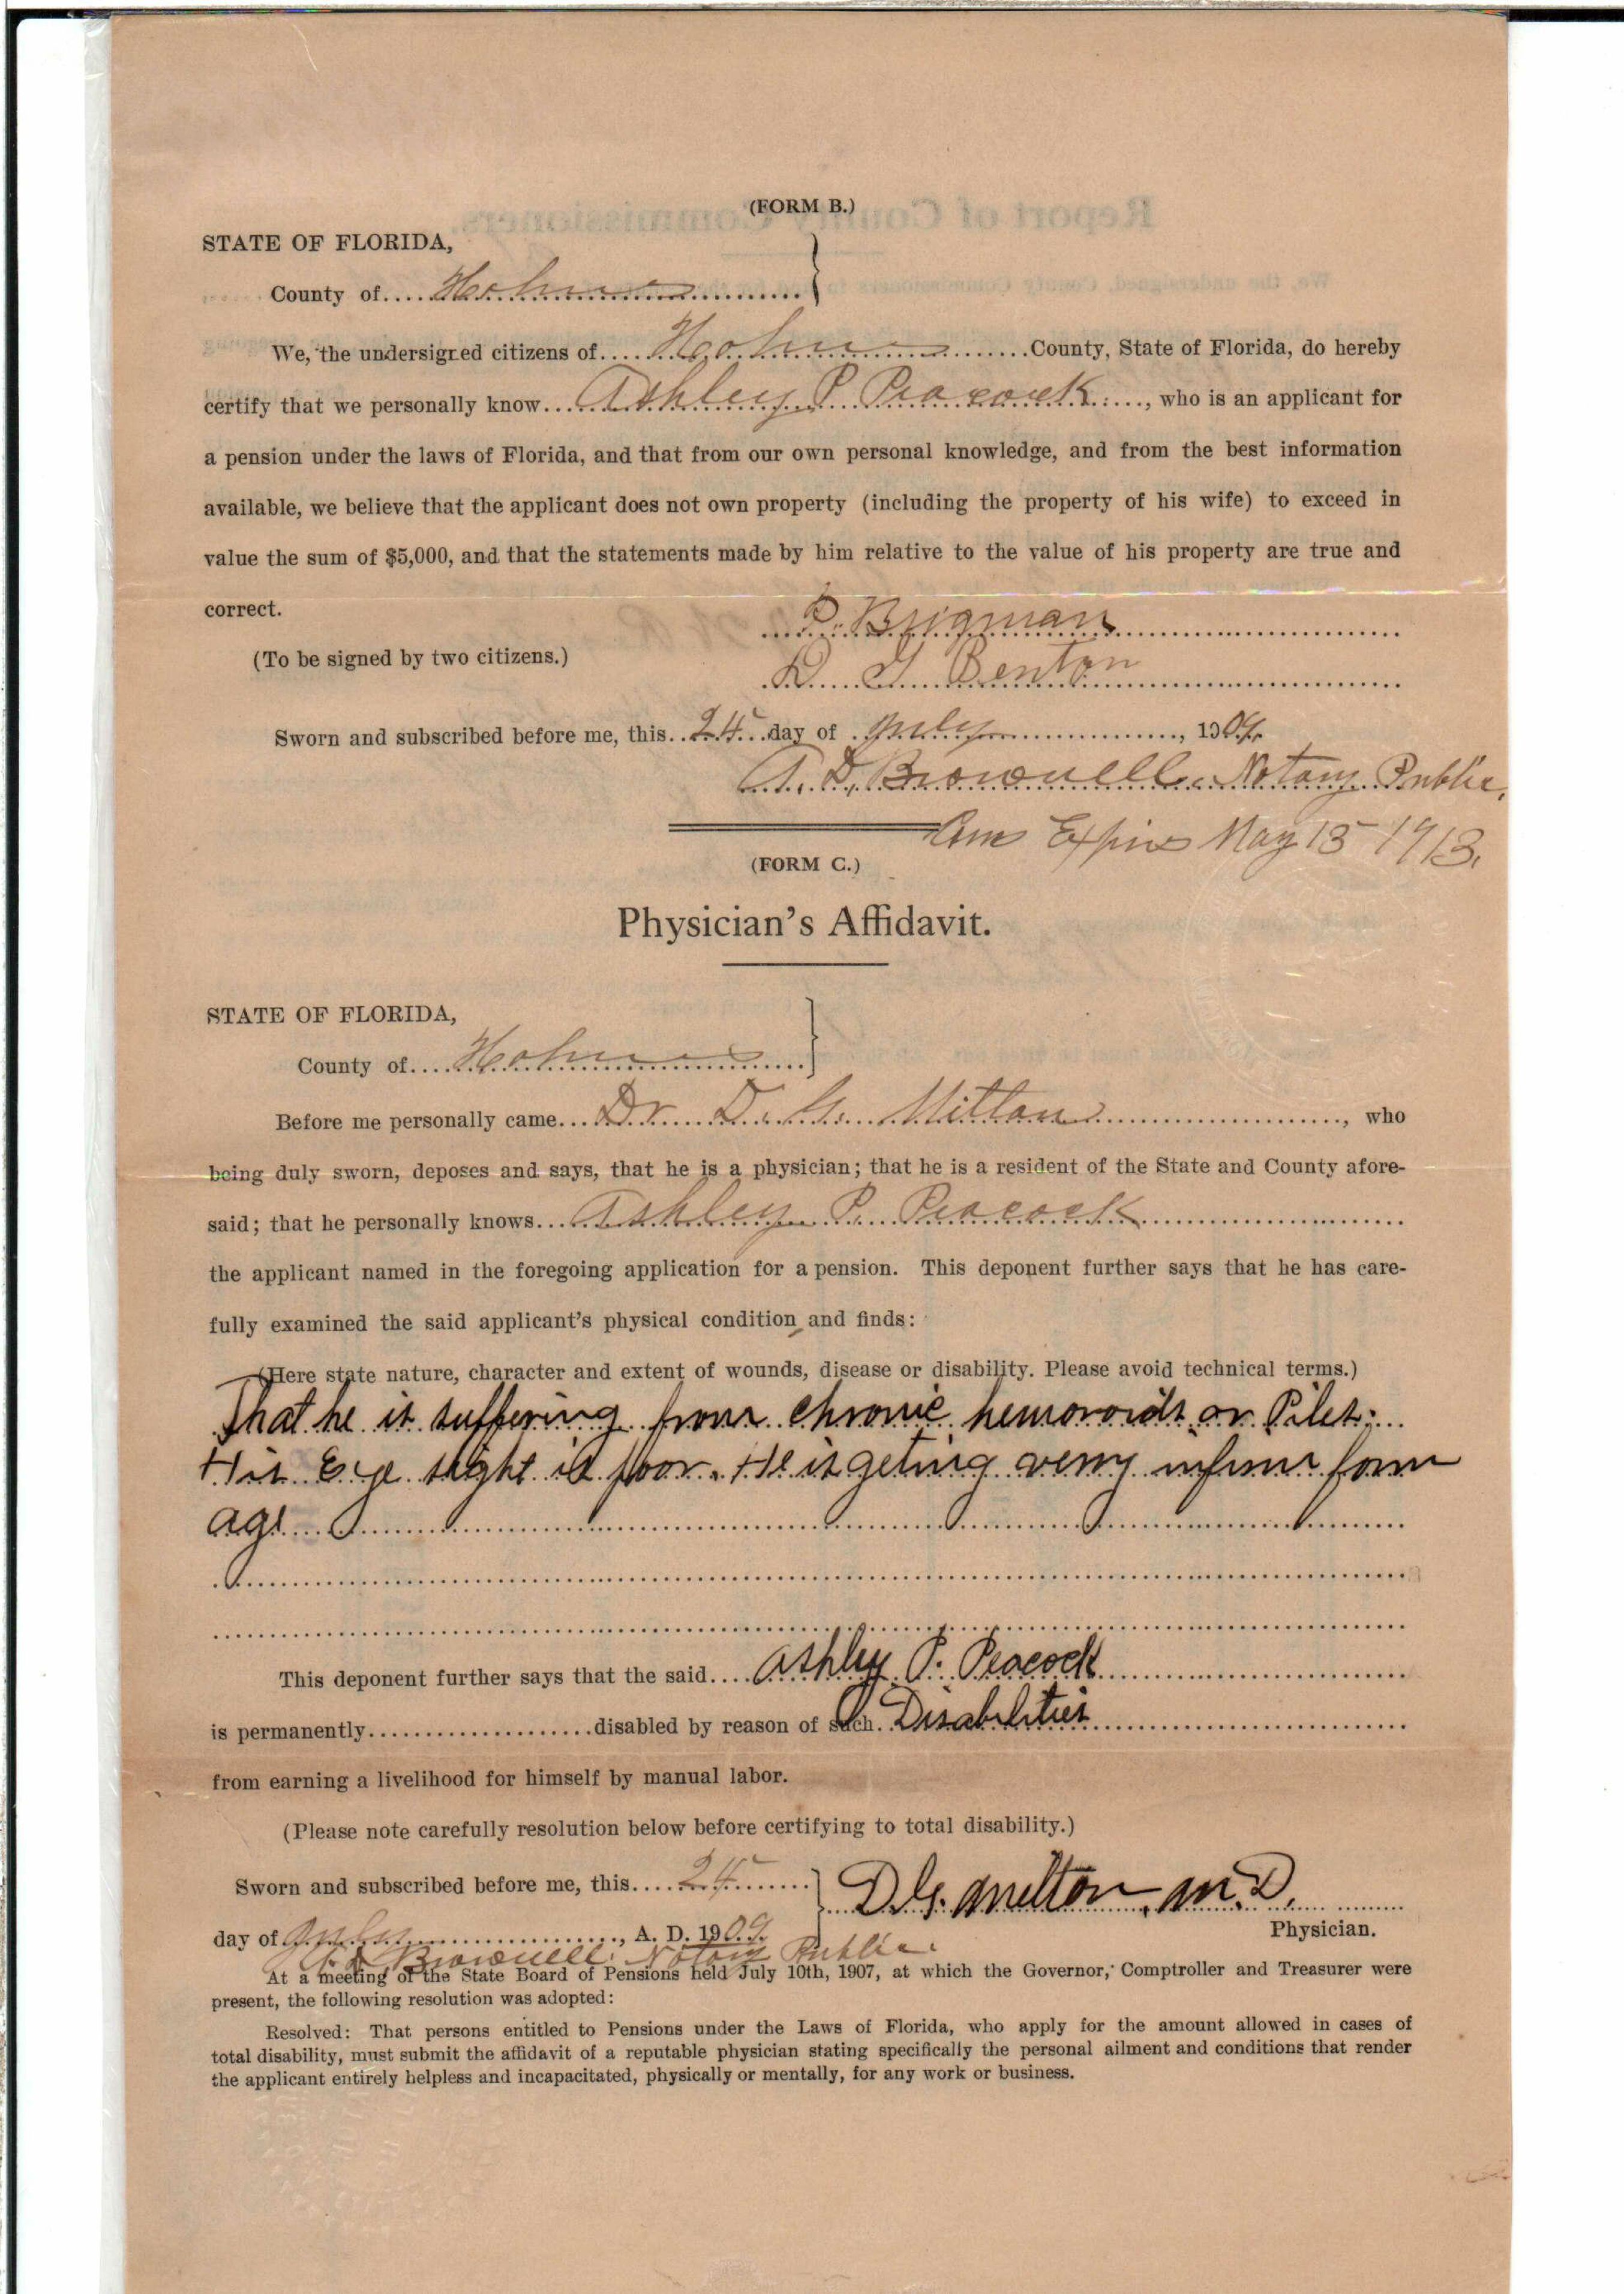 (FORM B.)
STATE OF FLORIDA,
County of.... Holmes
We, the undersigned citizens of.... Holmes ....County, State of Florida, do hereby
certify that we personally know... Ashley P. Peacock ...., who is an applicant for
a pension under the laws of Florida, and that from our own personal knowledge, and from the best information
available, we believe that the applicant does not own property (including the property of his wife) to exceed in
value the sum of $5,000, and that the statements made by him relative to the value of his property are true and
correct.
P. Brigman
(To be signed by two citizens.)
D. G. Benton
Sworn and subscribed before me, this.. 24 ..day of July ...., 1909.
A. D. Brownell. Notary Public.
Com Expires May 15 1913.
(FORM C.)
Physician's Affidavit.
STATE OF FLORIDA,
County of.... Holmes
Before me personally came... Dr. D. G. Milton ...., who
being duly sworn, deposes and says, that he is a physician; that he is a resident of the State and County afore-
said; that he personally knows... Ashley P. Peacock
the applicant named in the foregoing application for a pension. This deponent further says that he has care-
fully examined the said applicant's physical condition, and finds:
(Here state nature, character and extent of wounds, disease or disability. Please avoid technical terms.)
That he is suffering from chronic hemoroids or Piles.
His Eye sight is poor. He is geting very infirm from
age
This deponent further says that the said.... Ashley P. Peacock
is permanently....................disabled by reason of such. Disabilities
from earning a livelihood for himself by manual labor.
(Please note carefully resolution below before certifying to total disability.)
Sworn and subscribed before me, this.... 24 .... D. G. Milton, M.D.
day of July ...., A. D. 1909. Physician.
A. D. Brownell. Notary Public.
At a meeting of the State Board of Pensions held July 10th, 1907, at which the Governor, Comptroller and Treasurer were
present, the following resolution was adopted:
Resolved: That persons entitled to Pensions under the Laws of Florida, who apply for the amount allowed in cases of
total disability, must submit the affidavit of a reputable physician stating specifically the personal ailment and conditions that render
the applicant entirely helpless and incapacitated, physically or mentally, for any work or business.